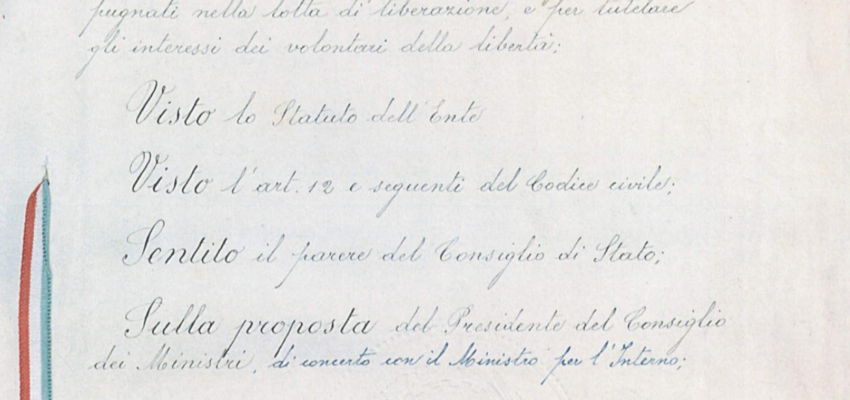 pugnati nella lotta di liberazione, e per tutelare
gli interessi dei volontari della libertà;
Visto lo Statuto dell'Ente
Visto l'art. 12 e seguenti del Codice civile;
Sentito il parere del Consiglio di Stato;
Sulla proposta del Presidente del Consiglio
dei Ministri, di concerto con il Ministro per l'Interno;